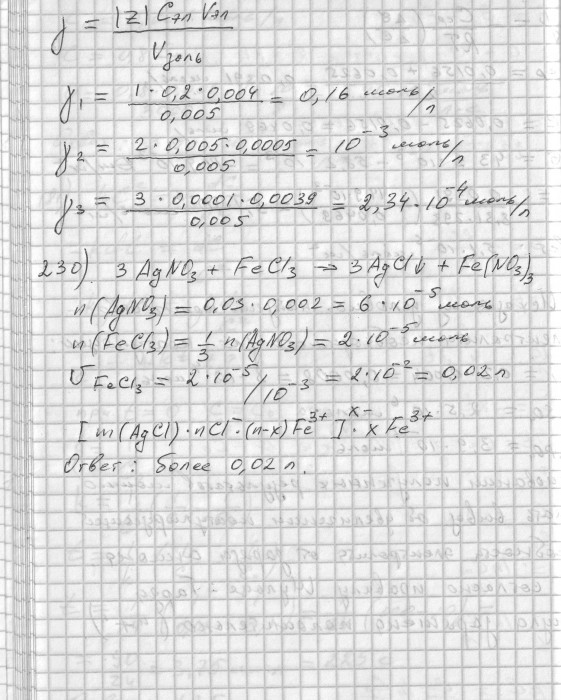 γ = |Z| Cэл Vэл / Vзоль
γ₁ = 1·0,2·0,004 / 0,005 = 0,16 моль/л
γ₂ = 2·0,005·0,0005 / 0,005 = 10⁻³ моль/л
γ₃ = 3·0,0001·0,0039 / 0,005 = 2,34·10⁻⁴ моль/л
230). 3 AgNO₃ + FeCl₃ → 3AgCl↓ + Fe(NO₃)₃
n(AgNO₃) = 0,03·0,002 = 6·10⁻⁵ моль
n(FeCl₃) = 1/3 n(AgNO₃) = 2·10⁻⁵ моль
V FeCl₃ = 2·10⁻⁵/10⁻³ = 2·10⁻² = 0,02 л
[m(AgCl)·nCl⁻·(n-x)Fe³⁺]ˣ⁻·xFe³⁺
Ответ: более 0,02 л.